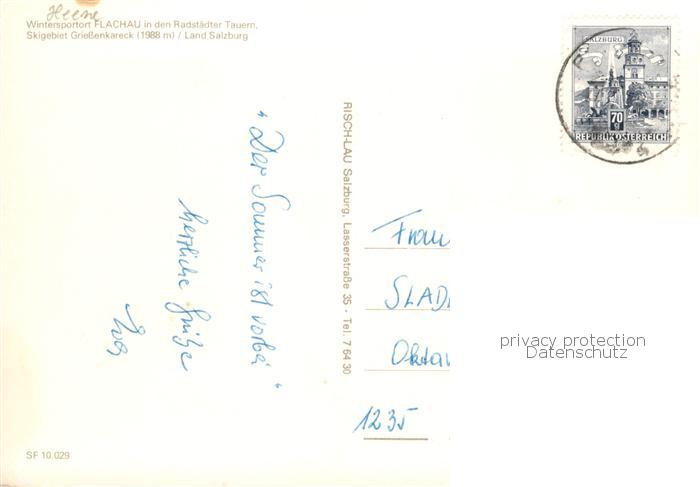 Heene
Wintersportort FLACHAU in den Radstädter Tauern,
Skigebiet Grießenkareck (1988 m) / Land Salzburg
SALZBURG
70 g
REPUBLIK ÖSTERREICH
„Der Sommer ist vorbei“
herzliche Grüße
RISCH-LAU Salzburg, Lasserstraße 35 - Tel. 7 64 30
Frau
SLAD
Oktav
1235
privacy protection
Datenschutz
SF 10.029